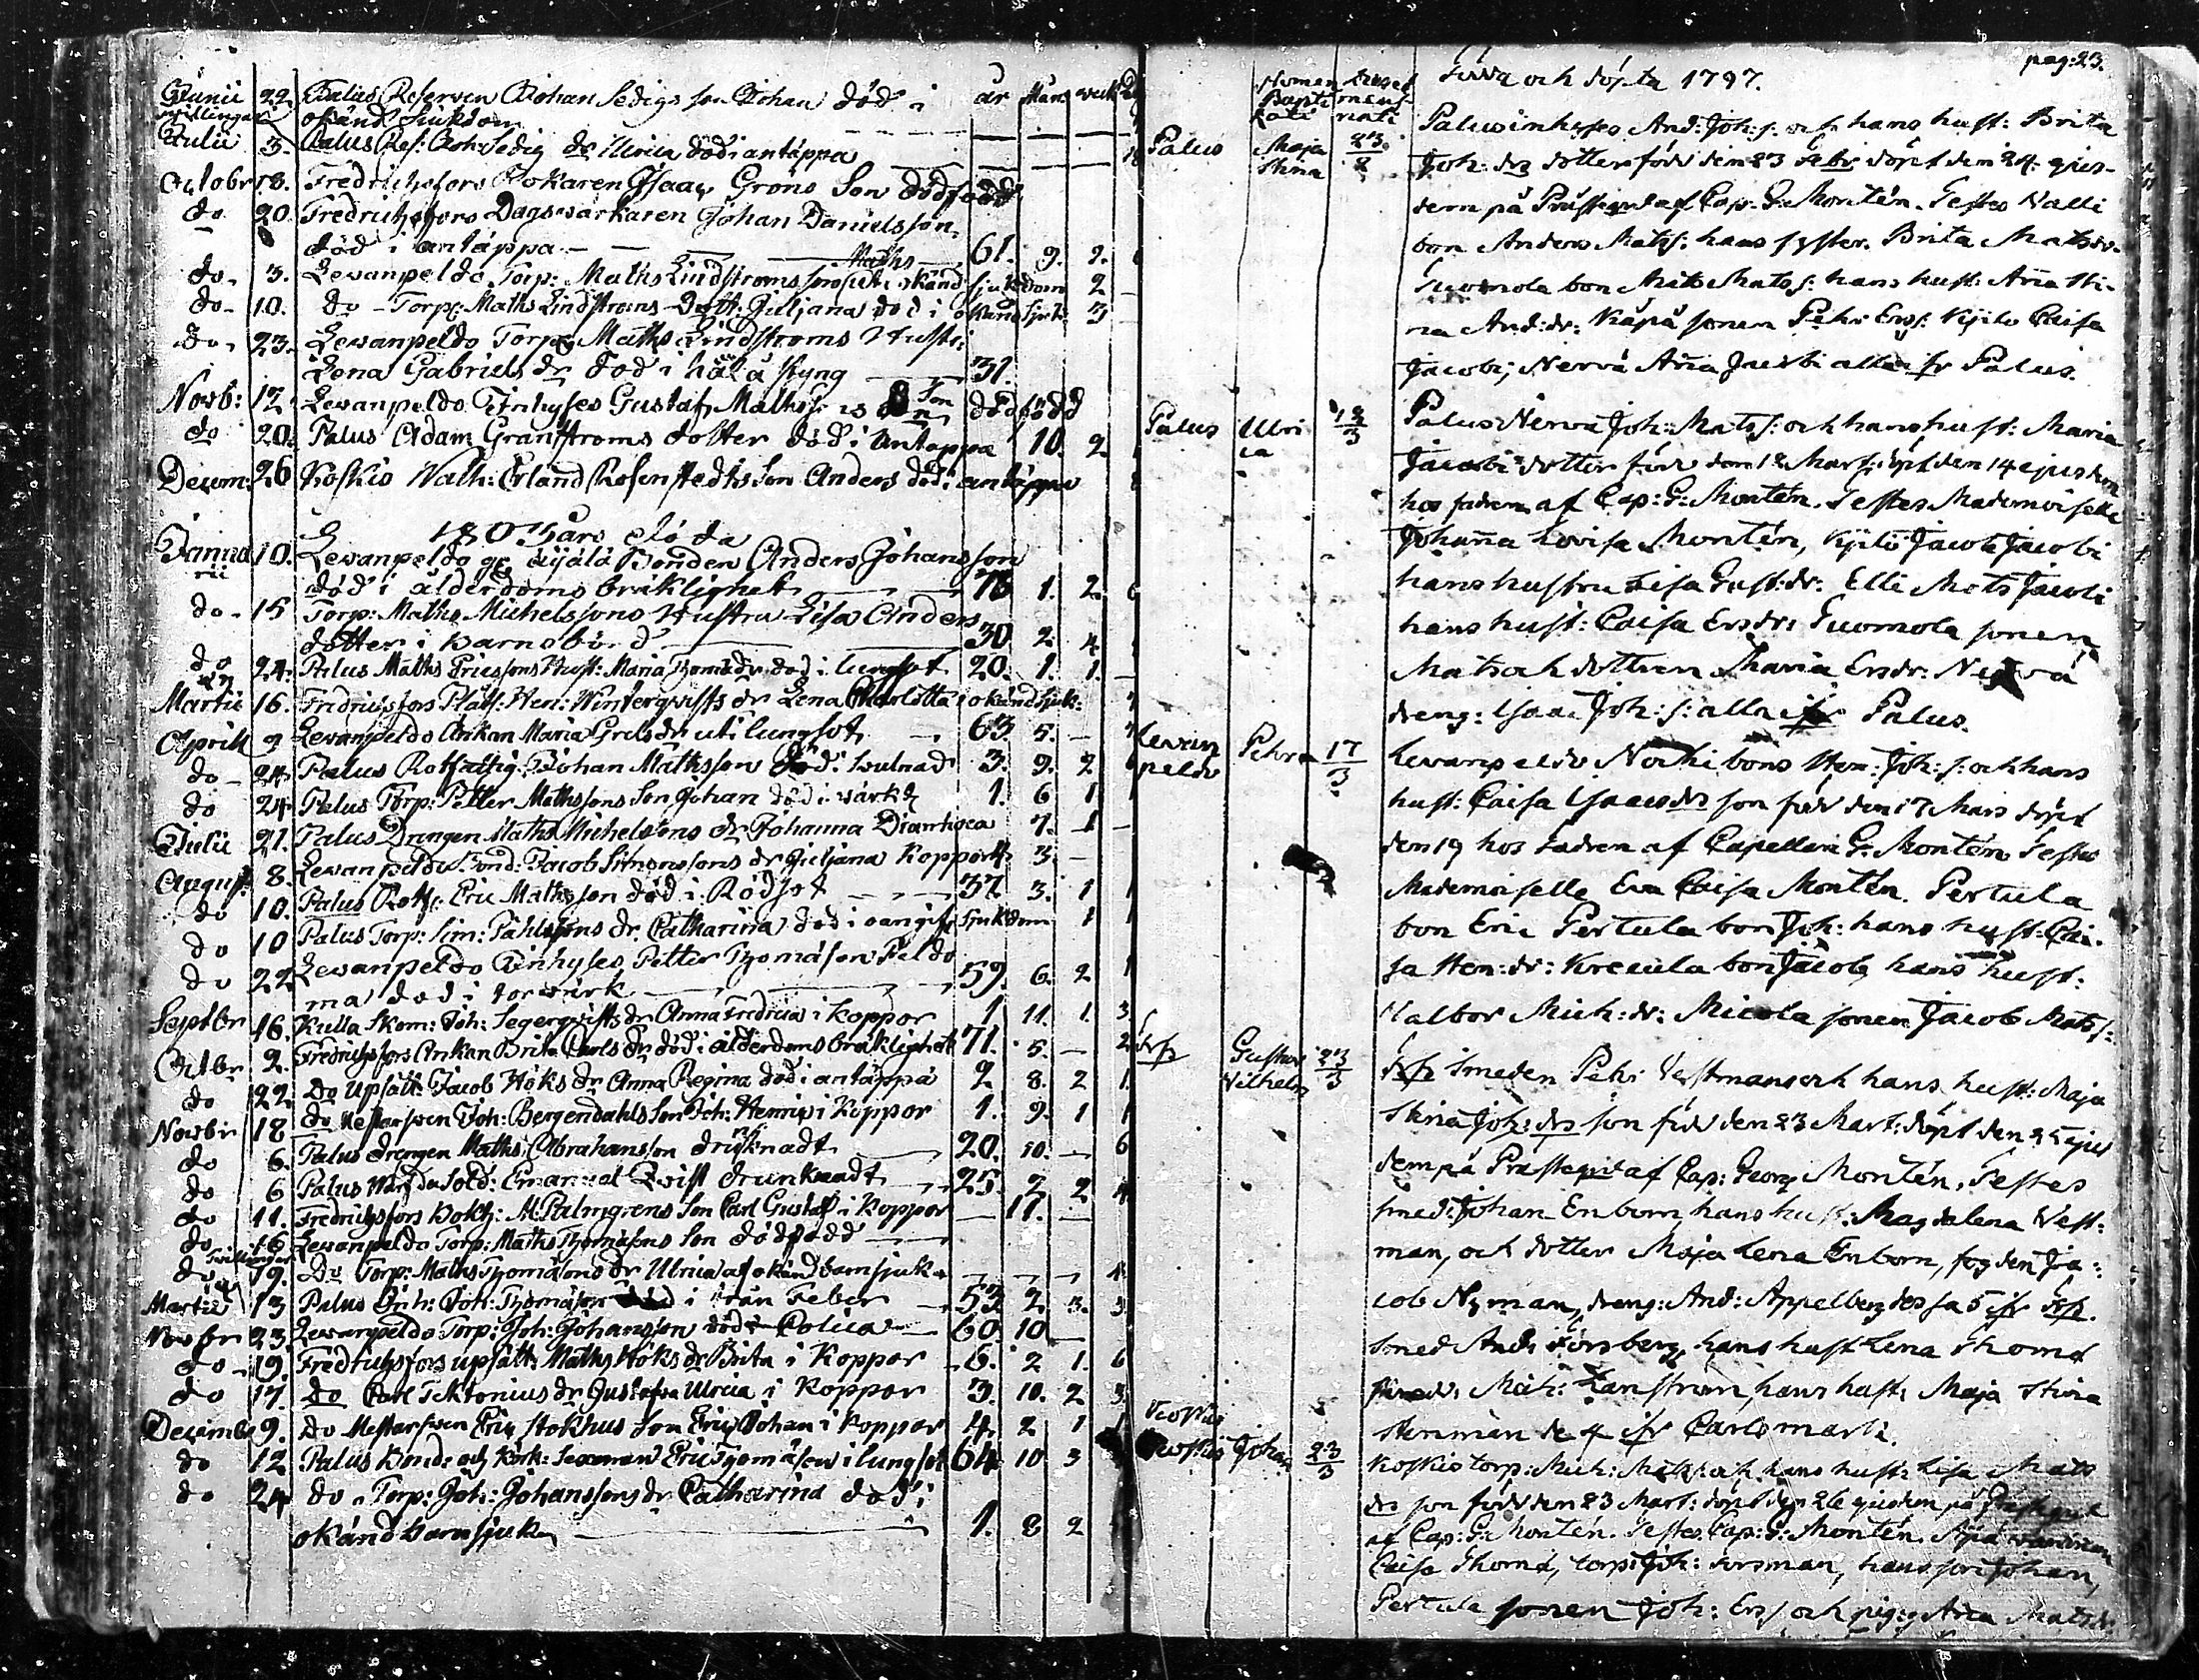 år Mån: veck
Junii 22. Palus Reserven Johan Sedigs son Johan död i
okänd sjukdom
Julii 3. Palus Res: Joh: Sedig dr Ulrica död i antäppa
Octobr 18. Fredrichsfors Isaac Gröns Son dödfödd
do 20. Fredrichsfors Dagsvärkaren Johan Danielsson
död i antäppa 61. 9. 2.
do 3. Lewanpeldo Torp: Maths Lindströms son Maths okänd sjukdom 2
do 10. do Torp: Maths Lindströms Dott: Juljana död i okänd sjuk: 3
do 23. Lewanpeldo Torp: Maths Lindströms Hustr:
Lena Gabriels dr död i håll å styng 31.
Novb: 12 Lewanpeldo Inhyses Gustaf Mathss Son dödfödd
do 20. Palus Adam Granströms dotter död i antäppa 10. 2
Decem: 26 Koskis Erland Rosenstedts Son Anders död i antäppa
1803 års döda
Januarii 10. Lewanpeldo Bonden Anders Johansson
död i ålderdoms bräklighet 76 1. 2. 6
do 15 Torp: Maths Michelssons Hustru Lisa Anders
dotter i Barnsbörd 30 2 4
do 24. Palus Maths Ericssons Hust: Maria Thomædr död i lungsot 20. 1. 1.
Martii 16. Fredrichsfors Hen: Winterqvists dr Lena Charlotta i okänd sjuk:
Aprill 9 Lewanpeldo Enkan Maria Grels dr uti lungsot 63 5.
do 24. Palus Rotfattig: Johan Mathsson död i swulnad 3. 9. 2
do 24 Palus Torp: Petter Mathssons Son Johan död i wärk 1. 6 1 1
Julii 21. Palus Drängen Maths Michelssons dr Johanna 7. 1
August 8. Lewanpeldo Bond: Jacob Simonssons dr Juljana Koppor 3.
do 10. Palus Eric Mathsson död i Rödsot 37 3. 1 1
do 10 Palus Torp: Sim: Påhlssons dr Catharina död i oangifv sjukdom 1 1
do 22 Lewanpeldo Inhyses Petter Thomæson Peldo
ma död i torwärk 59. 6. 2 1
Septbr 16. Kulla Skom: Joh: Segerqvists dr Anna Fredrica i koppor 1 11. 1. 3
Octbr 2. Fredrichsfors Enkan Brita Carls dr död i ålderdoms bräklighet 71. 5. 2
do 22 Do Upsätt: Jacob Höks dr Anna Regina död i antäppa 2 8. 2 1.
Novbr 18 do Mästarsven Joh: Bergendahls Son Joh: Henric i Koppor 1. 9. 1 1
do 6. Palus drengen Maths Abrahansson drunknadt 20. 10. 6
do 6 Palus Sold: Emanuel Qvist drunknadt 25. 2 2 4
do 11. Fredrichsfors Bokh: M: Palmgrens Son Carl Gustaf i Koppor 11.
do 16 Lewanpeldo Torp: Maths Thomæsons Son dödfödd
do 19. Do Torp: Maths Thomæsons dr Ulrica af okänd barnsjuk 4
Martii 13 Palus Inh: Joh: Thomæson i från Feber 53 2 3. 3
Novbr 23. Lewanpeldo Torp: Joh: Johansson död i Colica 60. 10
do 19. Fredrichsfors upsätt: Maths Höks dr Brita i Koppor 6. 2 1. 6
do 17. Do Carl Tektonius dr Gustafva Ulrica i Koppor 3. 10. 2 3.
Decembr 9. Do Mästarsven Eric Stokhus Son Eric Johan i Koppor 4. 2 1 1
do 12 Palus Bond: och Kyrk: Sexman Eric Thomæson i lungsot 64 10 3
do 24 do Torp: Joh: Johanssons dr Catharina död i
okänd barnsjuk 1. 8 2
pag: 23.
Nomen Baptizati
Födda och döpta 1797.
Palus Maja Stina 23/2 Palus inhyses And: Joh: s: och hans hust: Brita
Joh: dr dotter född den 23 Febr: döpt den 24 ejus-
dem på Prästegård af Cap: G: Montén. Testes Nalli
bon Anders Mats s: hans syster Brita Matsdr.
Suomola bon Mats Mats s: hans hust: Aña Sti-
na And: dr: Käpä sonen Pehr Ers s: Kylö Caisa
Jacobi; Nervä Aña Jacobi alla ifr Palus.
Palus Ulrica 12/3 Palus Nervä Joh: Mats s: och hans hust: Maria
Jacobi dotter född den 12 Mars: döpt den 14 ejusdem
hos fadren af Cap: G: Montén. Testes Mademoiselle
Johaña Lovisa Montén, Kylö Jacob Jacobi
hans hustru Lisa Gust: dr: Elli Mats Jacobi
hans hust: Caisa Ersdr: Suomola sonen
Mats och dottren Maria Ersdr: Nervä
dreng: Isaac Joh: s: alla ifr Palus.
Levanpeldo Pehr 17/3 Levanpeldo Norki bons Hen: Joh: s: och hans
hust: Caisa Isaacs dr son född den 17 Mars döpt
den 19 hos fadren af Capellan G: Montén Testes
Mademoiselle Eva Caisa Montén. Pertula
bon Eric Pertula bon Joh: hans hust: Cai-
sa Hen: dr: Kreeula bon Jacob, hans hust:
Valbor Mich: dr: Micola sonen Jacob Mats s:
Frfs Gustav Vilhelm 23/3 Frfs Smeden Pehr Vestman och hans hust: Maja
Stina Joh: dr son född den 23 Mart: döpt den 25 ejus
dem på Prästegård af Cap: Georg Montén. Testes
smed: Johan Enbom, hans hust: Magdalena Vest:
man, och dotter Maja Lena Enbom, fogden Ja:
cob Nyman, dreng: And: Appelberg dessa 5 ifr Frfs.
Smed And: Forsberg, hans hust Lena Thomæ
smed: Mich: Zanström, hans hust: Maja Stina
Stenman de 4 ifr Carlsmark.
Koskis Johan 23/3 Koskis torp: Mich: Mats s: och hans hust: Lisa Mats
dr son född den 23 Mart: döpt den 26 ejusdem på Prästegård
af Cap: G: Montén. Testes Cap: G: Montén.
Caisa Thomæ, torp: Joh: Forsman, hans son Johan,
Pertula sonen Joh: Ers s: och pig: Aña Matsdr.